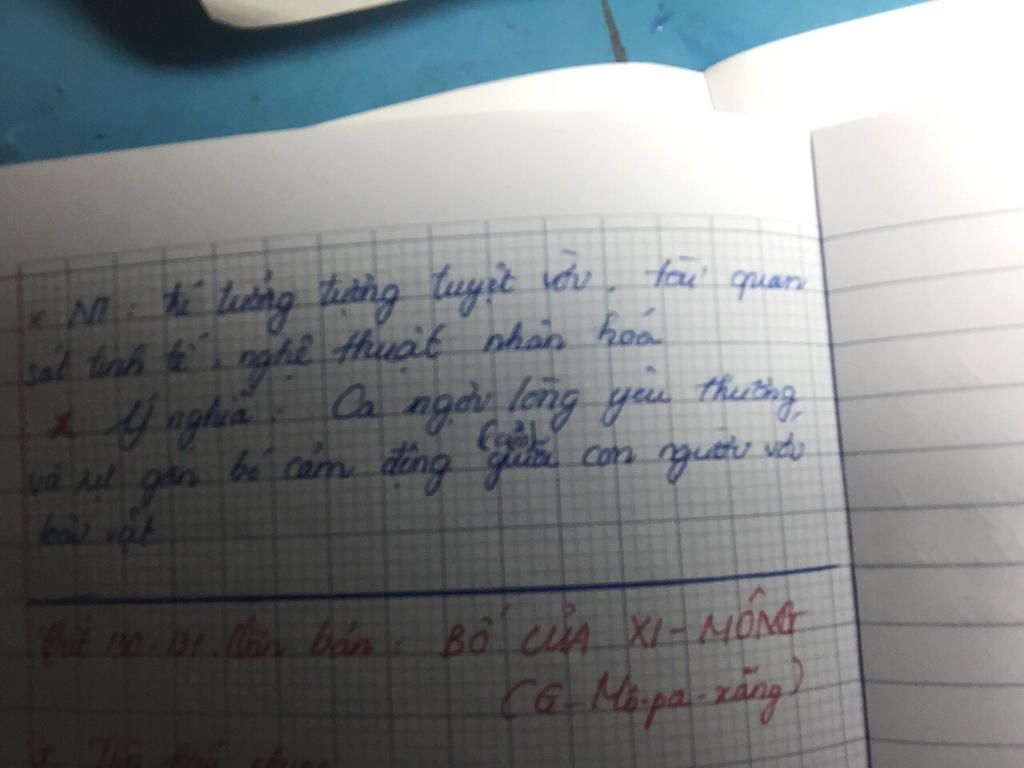 x NT: trí tưởng tượng tuyệt vời, tài quan
sát tinh tế, nghệ thuật nhân hoá
x Ý nghĩa: Ca ngợi lòng yêu thương,
(của)
và sự gắn bó cảm động giữa con người với
loài vật
Tiết 130-131. Văn bản: BỐ CỦA XI-MÔNG
(G-Mô-pa-xăng)